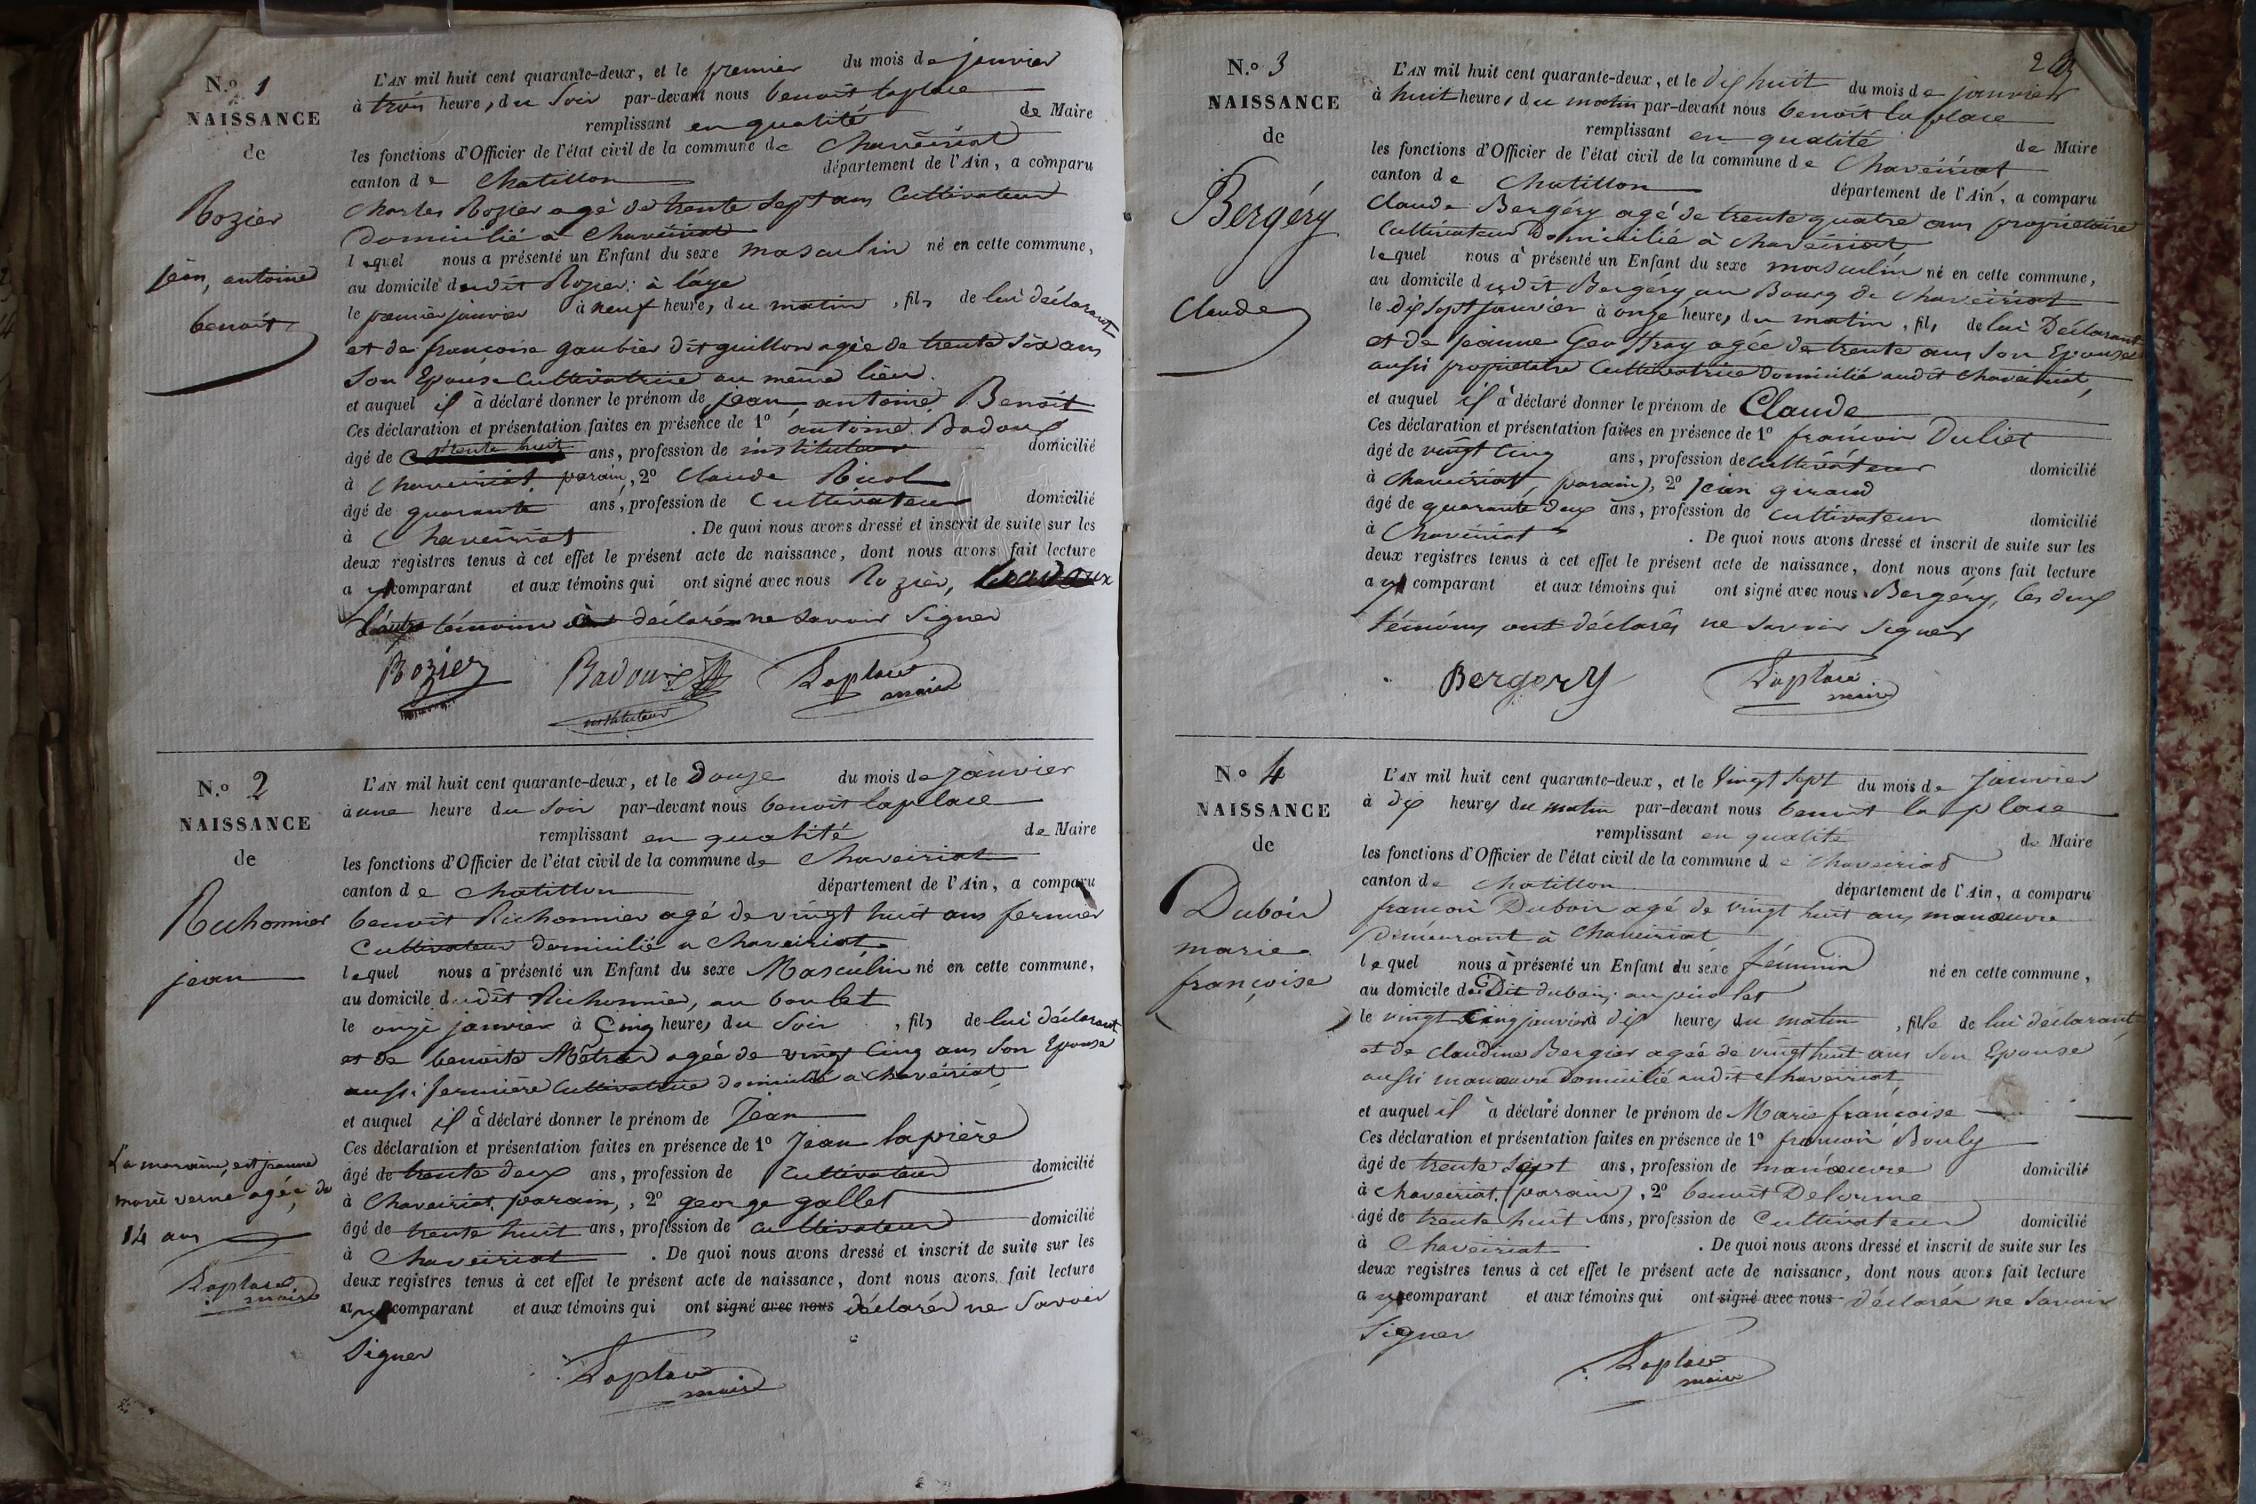 N.o 1
NAISSANCE
de
Rozier
jèan, antoine
benoit
L'AN mil huit cent quarante-deux, et le premier du mois de janvier
à trois heures, du soir par-devant nous benoit laplace
remplissant en qualité de Maire
les fonctions d'Officier de l'état civil de la commune de Chaveiriat
canton de Chatillon département de l'Ain, a comparu
Charles Rozier agé de trente sept ans Cultivateur
domicilié à Chaveiriat
lequel nous a présenté un Enfant du sexe masculin né en cette commune,
au domicile dudit Rozier à
le premier janvier à neuf heures, du matin, fils de lui déclarant
et de françoise gaubier dit guillon agée de trente six ans
son Epouse Cultivatrice au même lieu.
et auquel il à déclaré donner le prénom de jean, antoine, Benoit
Ces déclaration et présentation faites en présence de 1o antoine Badoux
âgé de trente huit ans, profession de instituteur domicilié
à Chaveiriat parain, 2o Claude
âgé de quarante ans, profession de Cultivateur domicilié
à Chaveiriat. De quoi nous avons dressé et inscrit de suite sur les
deux registres tenus à cet effet le présent acte de naissance, dont nous avons fait lecture
a comparant et aux témoins qui ont signé avec nous Rozier,
l'autre témoins à déclaré ne savoir signer
Rozier Badoux Laplace
instituteur maire
N.o 2
NAISSANCE
de
Richonnier
jean
La maraine, est jeanne
marie verne agée, de
14 ans
Laplace
maire
L'AN mil huit cent quarante-deux, et le Douze du mois de janvier
à une heure du soir par-devant nous benoit laplace
remplissant en qualité de Maire
les fonctions d'Officier de l'état civil de la commune de Chaveiriat
canton de Chatillon département de l'Ain, a comparu
benoit Richonnier agé de vingt huit ans fermier
Cultivateur domicilié a Chaveiriat
lequel nous a présenté un Enfant du sexe Masculin né en cette commune,
au domicile dudit Richonnier, au boulet
le onze janvier à Cinq heures du soir, fils de lui déclarant
et de benoite Mètrat agée de vingt Cinq ans son Epouse
aussi fermière Cultivatrice domicilié a Chaveiriat
et auquel il à déclaré donner le prénom de Jean
Ces déclaration et présentation faites en présence de 1o Jean lapière
âgé de trente deux ans, profession de Cultivateur domicilié
à Chaveiriat, parain, 2o george gallet
âgé de trente huit ans, profession de Cultivateur domicilié
à Chaveiriat. De quoi nous avons dressé et inscrit de suite sur les
deux registres tenus à cet effet le présent acte de naissance, dont nous avons fait lecture
au comparant et aux témoins qui ont signé avec nous déclarés ne savoir
signer
Laplace
maire
N.o 3
NAISSANCE
de
Bergéry
Claude
L'AN mil huit cent quarante-deux, et le dix huit du mois de janvier
à huit heures, du matin par-devant nous benoit laplace
remplissant en qualité de Maire
les fonctions d'Officier de l'état civil de la commune de Chaveiriat
canton de Chatillon département de l'Ain, a comparu
Claude Bergéry agé de trente quatre ans proprietaire
Cultivateur domicilié à Chaveiriat
lequel nous à présenté un Enfant du sexe masculin né en cette commune,
au domicile dudit Bergéry au Bourg de Chaveiriat
le dix sept janvier à onze heures, du matin, fils de lui Déclarant
et de jeanne Geoffray agée de trente ans son Epouse
aussi propriétaire Cultivatrice domicilié audit Chaveiriat,
et auquel il à déclaré donner le prénom de Claude
Ces déclaration et présentation faites en présence de 1o françois Duliet
âgé de vingt Cinq ans, profession de Cultivateur domicilié
à Chaveiriat, (parain), 2o jean giraud
âgé de quarante deux ans, profession de Cultivateur domicilié
à Chaveiriat. De quoi nous avons dressé et inscrit de suite sur les
deux registres tenus à cet effet le présent acte de naissance, dont nous avons fait lecture
au comparant et aux témoins qui ont signé avec nous Bergéry, les deux
témoins ont déclarés ne savoir signer
Bergery Laplace
maire
N.o 4
NAISSANCE
de
Dubois
marie
françoise
L'AN mil huit cent quarante-deux, et le Vingt sept du mois de Janvier
à dix heures du matin par-devant nous benoit la place
remplissant en qualité de Maire
les fonctions d'Officier de l'état civil de la commune de Chaveiriat
canton de Chatillon département de l'Ain, a comparu
françois Dubois agé de vingt huit ans manœuvre
demeurant à Chaveiriat
lequel nous à présenté un Enfant du sexe féminin né en cette commune,
au domicile du Dit dubois, au
le vingt Cinq janvier à dix heures du matin, fille de lui déclarant
et de Claudine Bergier agée de vingt huit ans son Epouse
aussi manœuvre domicilié audit Chaveiriat
et auquel il à déclaré donner le prénom de Marie françoise
Ces déclaration et présentation faites en présence de 1o françois Bouly
âgé de trente sept ans, profession de manœuvre domicilié
à Chaveiriat, (parain), 2o benoit Delorme
âgé de trente huit ans, profession de Cultivateur domicilié
à Chaveiriat. De quoi nous avons dressé et inscrit de suite sur les
deux registres tenus à cet effet le présent acte de naissance, dont nous avons fait lecture
au comparant et aux témoins qui ont signé avec nous déclarés ne savoir
signer
Laplace
maire